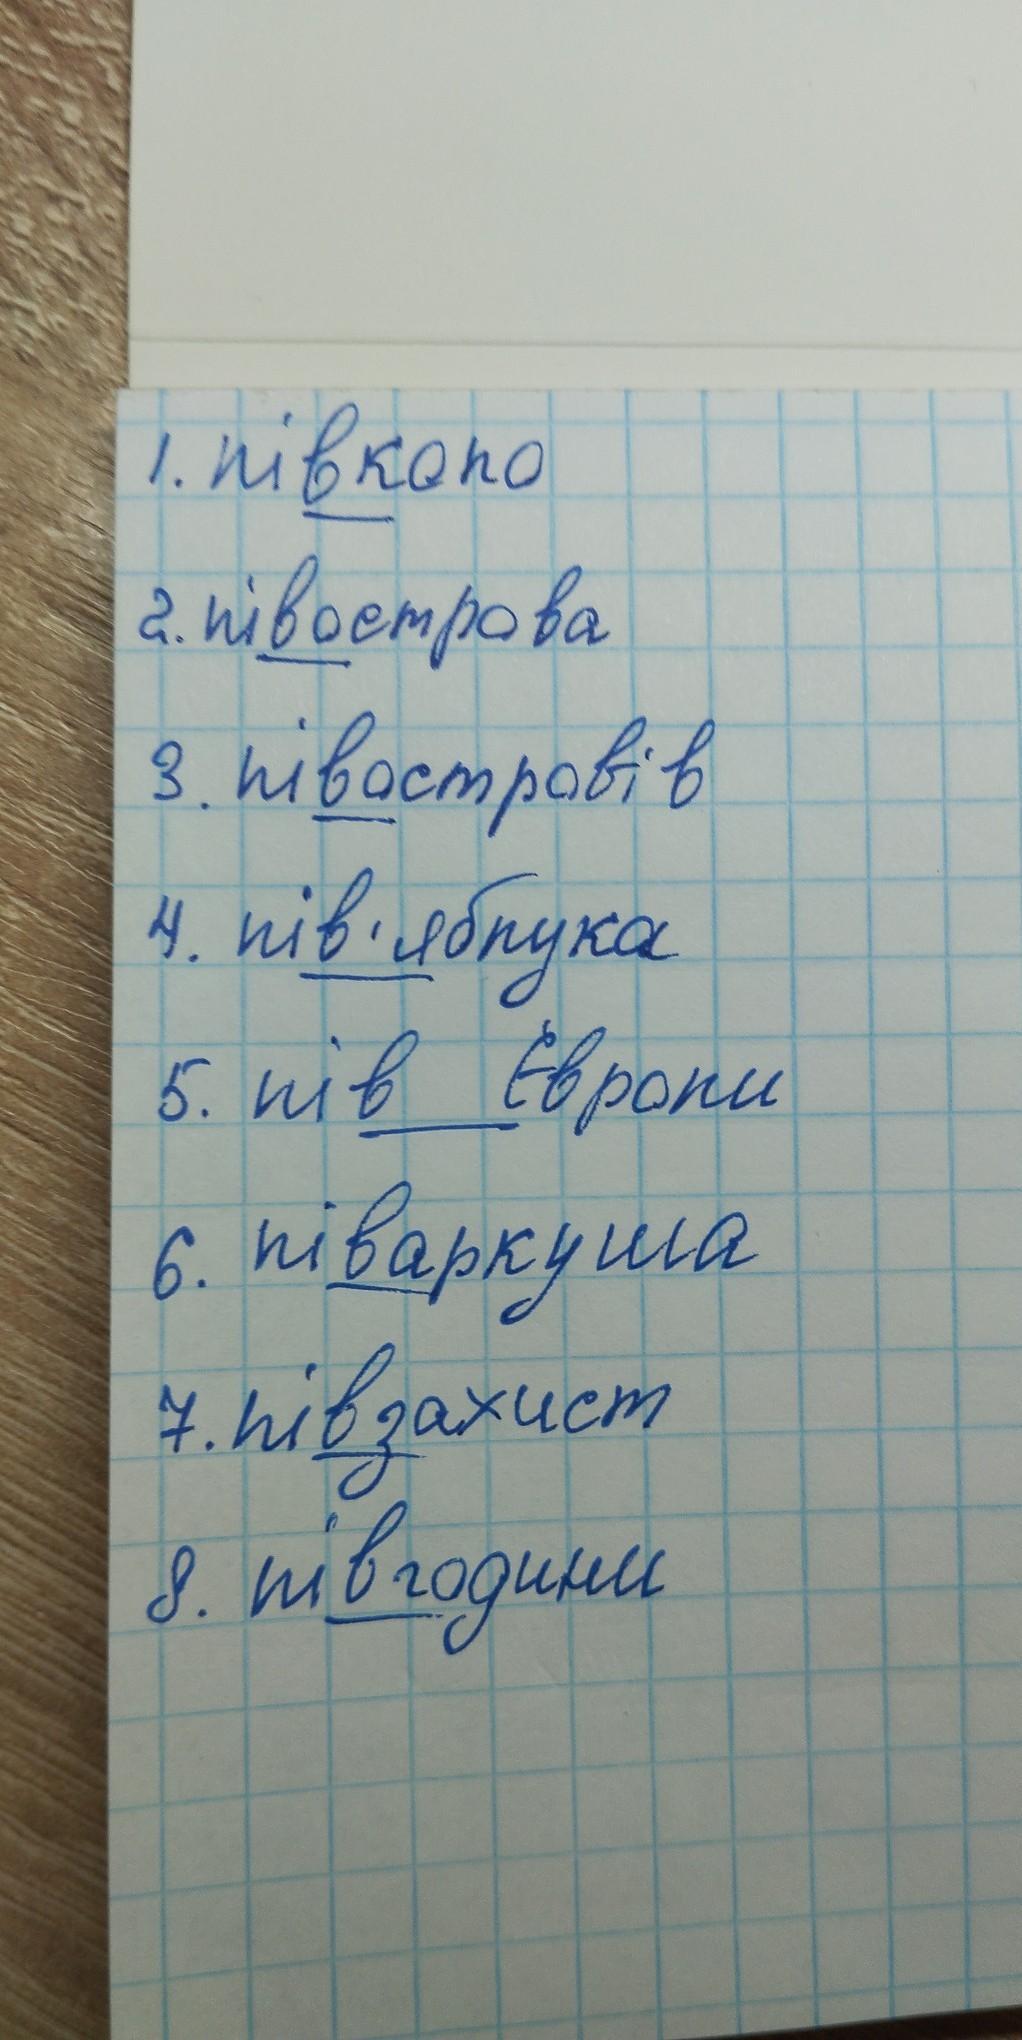 1. півколо
2. півострова
3. півостровів
4. пів'яблука
5. пів Європи
6. піваркуша
7. півзахист
8. півгодини